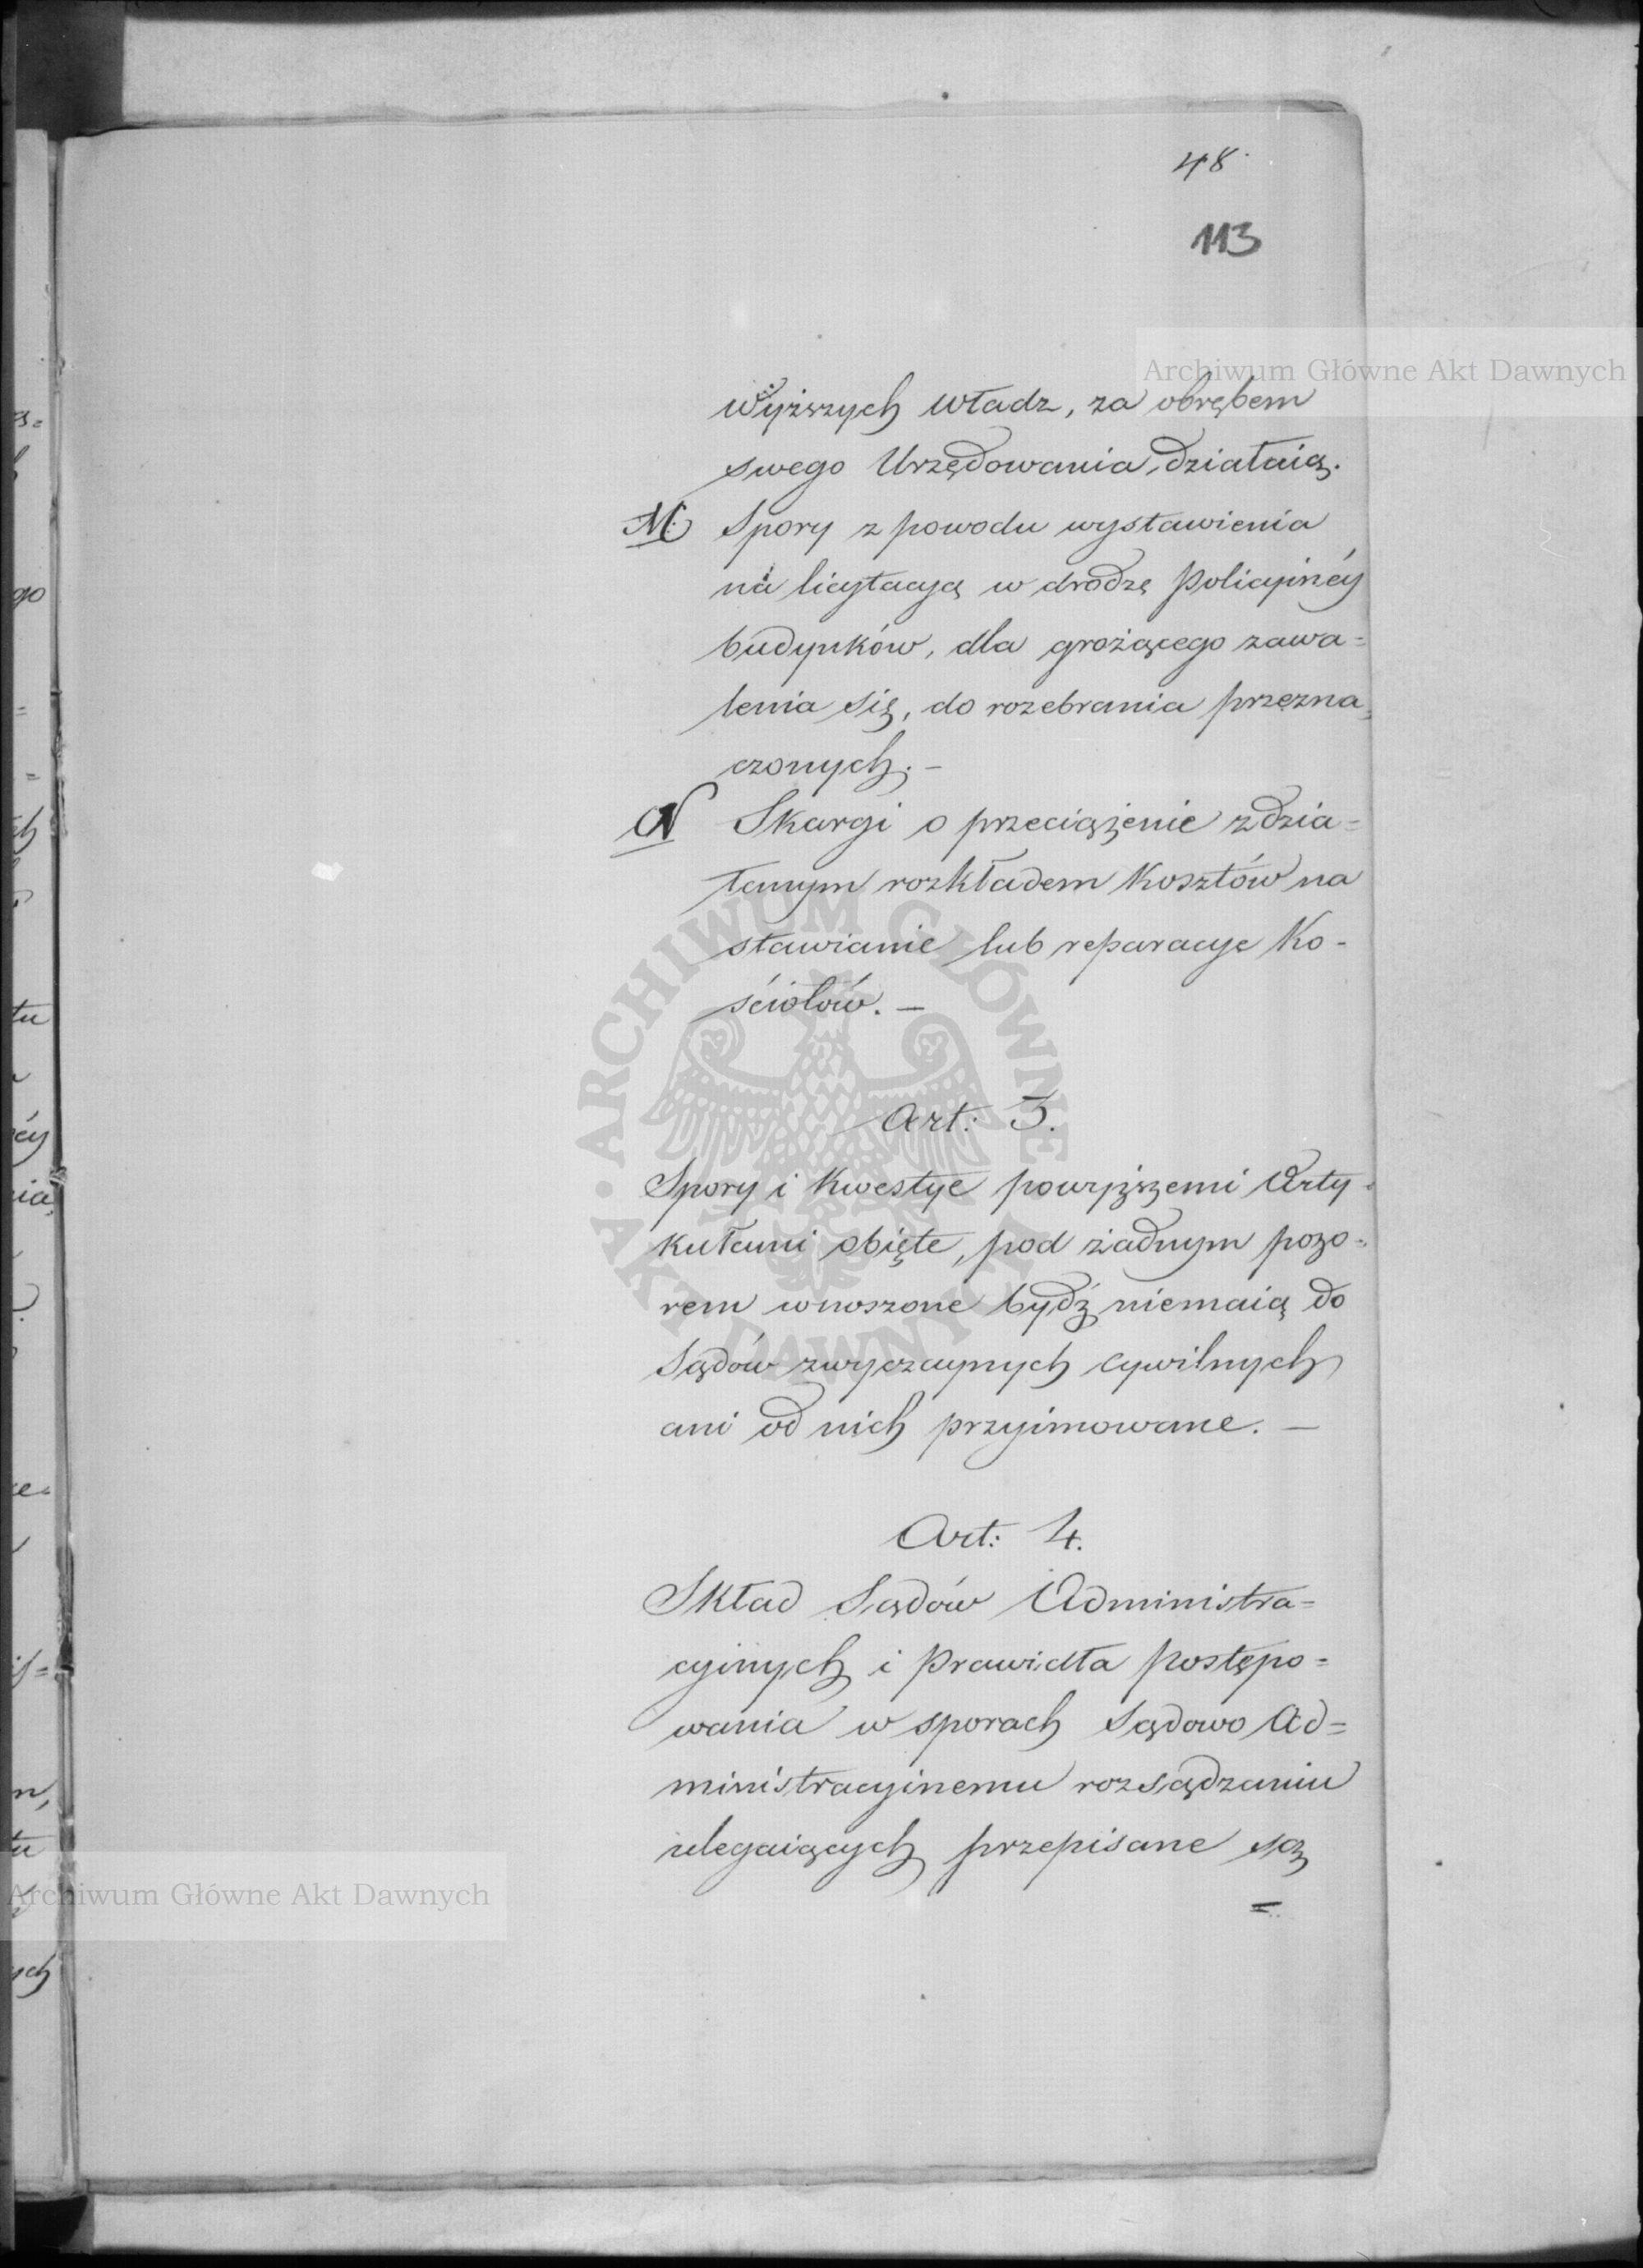 48.
113
Archiwum Główne Akt Dawnych
wyższych władz, za obrębem
swego Urzędowania, działaią.
M. Spory z powodu wystawienia
na licytacyą w drodze Policyinéy
budynków, dla grożącego zawa=
lenia się, do rozebrania przezna=
czonych. –
N Skargi o przeciążenie zdzia=
łanym rozkładem Kosztów na
stawianie lub reparacye Ko-
ściołów. –
Art: 3.
Spory i Kwestye powyższemi Arty-
kułami obięte, pod żadnym pozo-
rem wnoszone bydź niemaią do
Sądów zwyczaynych cywilnych
ani od nich przyimowane. –
Art: 4.
Skład Sądów Administra=
cyinych i Prawidła postępo=
wania w sporach Sądowo Ad=
ministracyinemu rozsądzaniu
ulegaiących przepisane są
=
ARCHIWUM GŁÓWNE
AKT DAWNYCH
Archiwum Główne Akt Dawnych